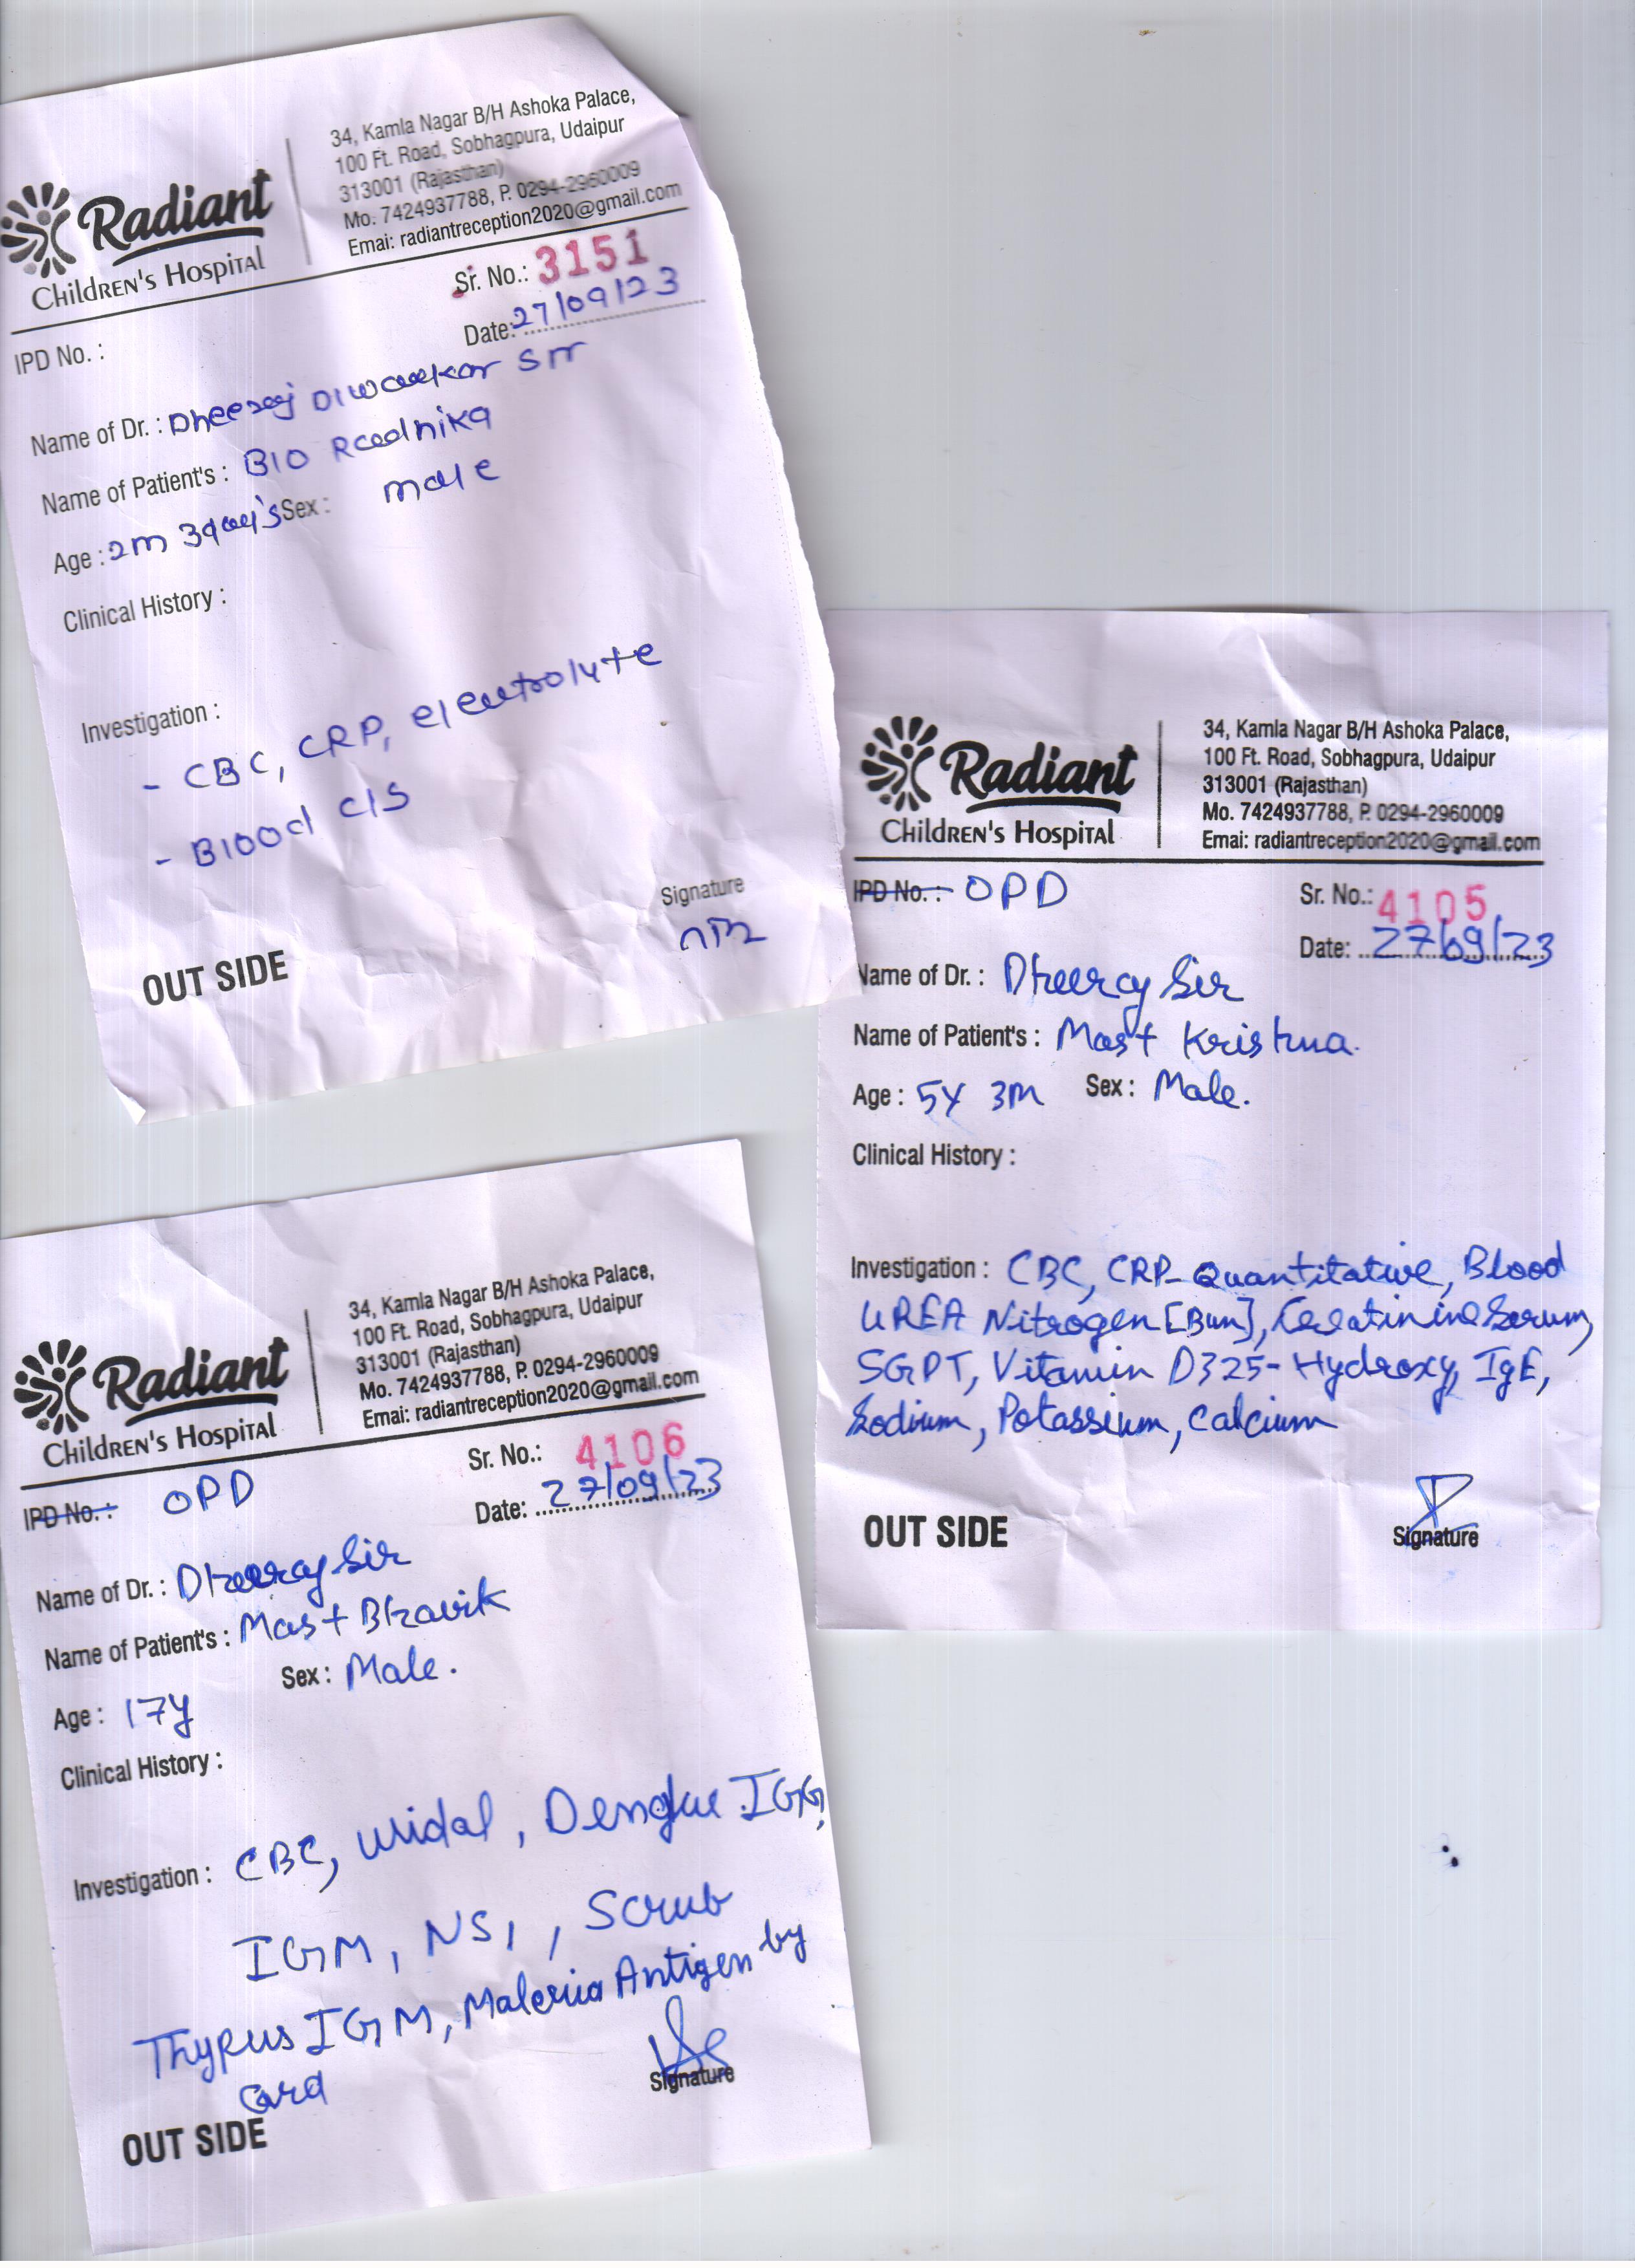 Radiant
Children's Hospital
34, Kamla Nagar B/H Ashoka Palace,
100 Ft. Road, Sobhagpura, Udaipur
313001 (Rajasthan)
Mo. 7424937788, P. 0294-2960009
Emai: radiantreception2020@gmail.com
Sr. No.: 3151
Date: 27/09/23
IPD No. :
Name of Dr. : Dheeraj Diwankar Sir
Name of Patient's : B/O Radhika
Age : 2m 3day's Sex : male
Clinical History :
Investigation :
- CBC, CRP, electrolyte
- Blood C/S
Signature
OUT SIDE
Radiant
Children's Hospital
34, Kamla Nagar B/H Ashoka Palace,
100 Ft. Road, Sobhagpura, Udaipur
313001 (Rajasthan)
Mo. 7424937788, P. 0294-2960009
Emai: radiantreception2020@gmail.com
IPD No. : OPD Sr. No.: 4105
Date: 27/09/23
Name of Dr. : Dheeraj Sir
Name of Patient's : Mast Krishna.
Age : 5Y 3M Sex : Male.
Clinical History :
Investigation : CBC, CRP-Quantitative, Blood
UREA Nitrogen [Bun], Creatinine Serum,
SGPT, Vitamin D325-Hydroxy, IgE,
Sodium, Potassium, Calcium
OUT SIDE Signature
Radiant
Children's Hospital
34, Kamla Nagar B/H Ashoka Palace,
100 Ft. Road, Sobhagpura, Udaipur
313001 (Rajasthan)
Mo. 7424937788, P. 0294-2960009
Emai: radiantreception2020@gmail.com
IPD No. : OPD Sr. No.: 4106
Date: 27/09/23
Name of Dr. : Dheeraj Sir
Name of Patient's : Mast Bhavik
Age : 17y Sex : Male.
Clinical History :
Investigation : CBC, Widal, Dengue IGG,
IGM, NS1, Scrub
Thypus IGM, Maleria Antigen by
Card
Signature
OUT SIDE